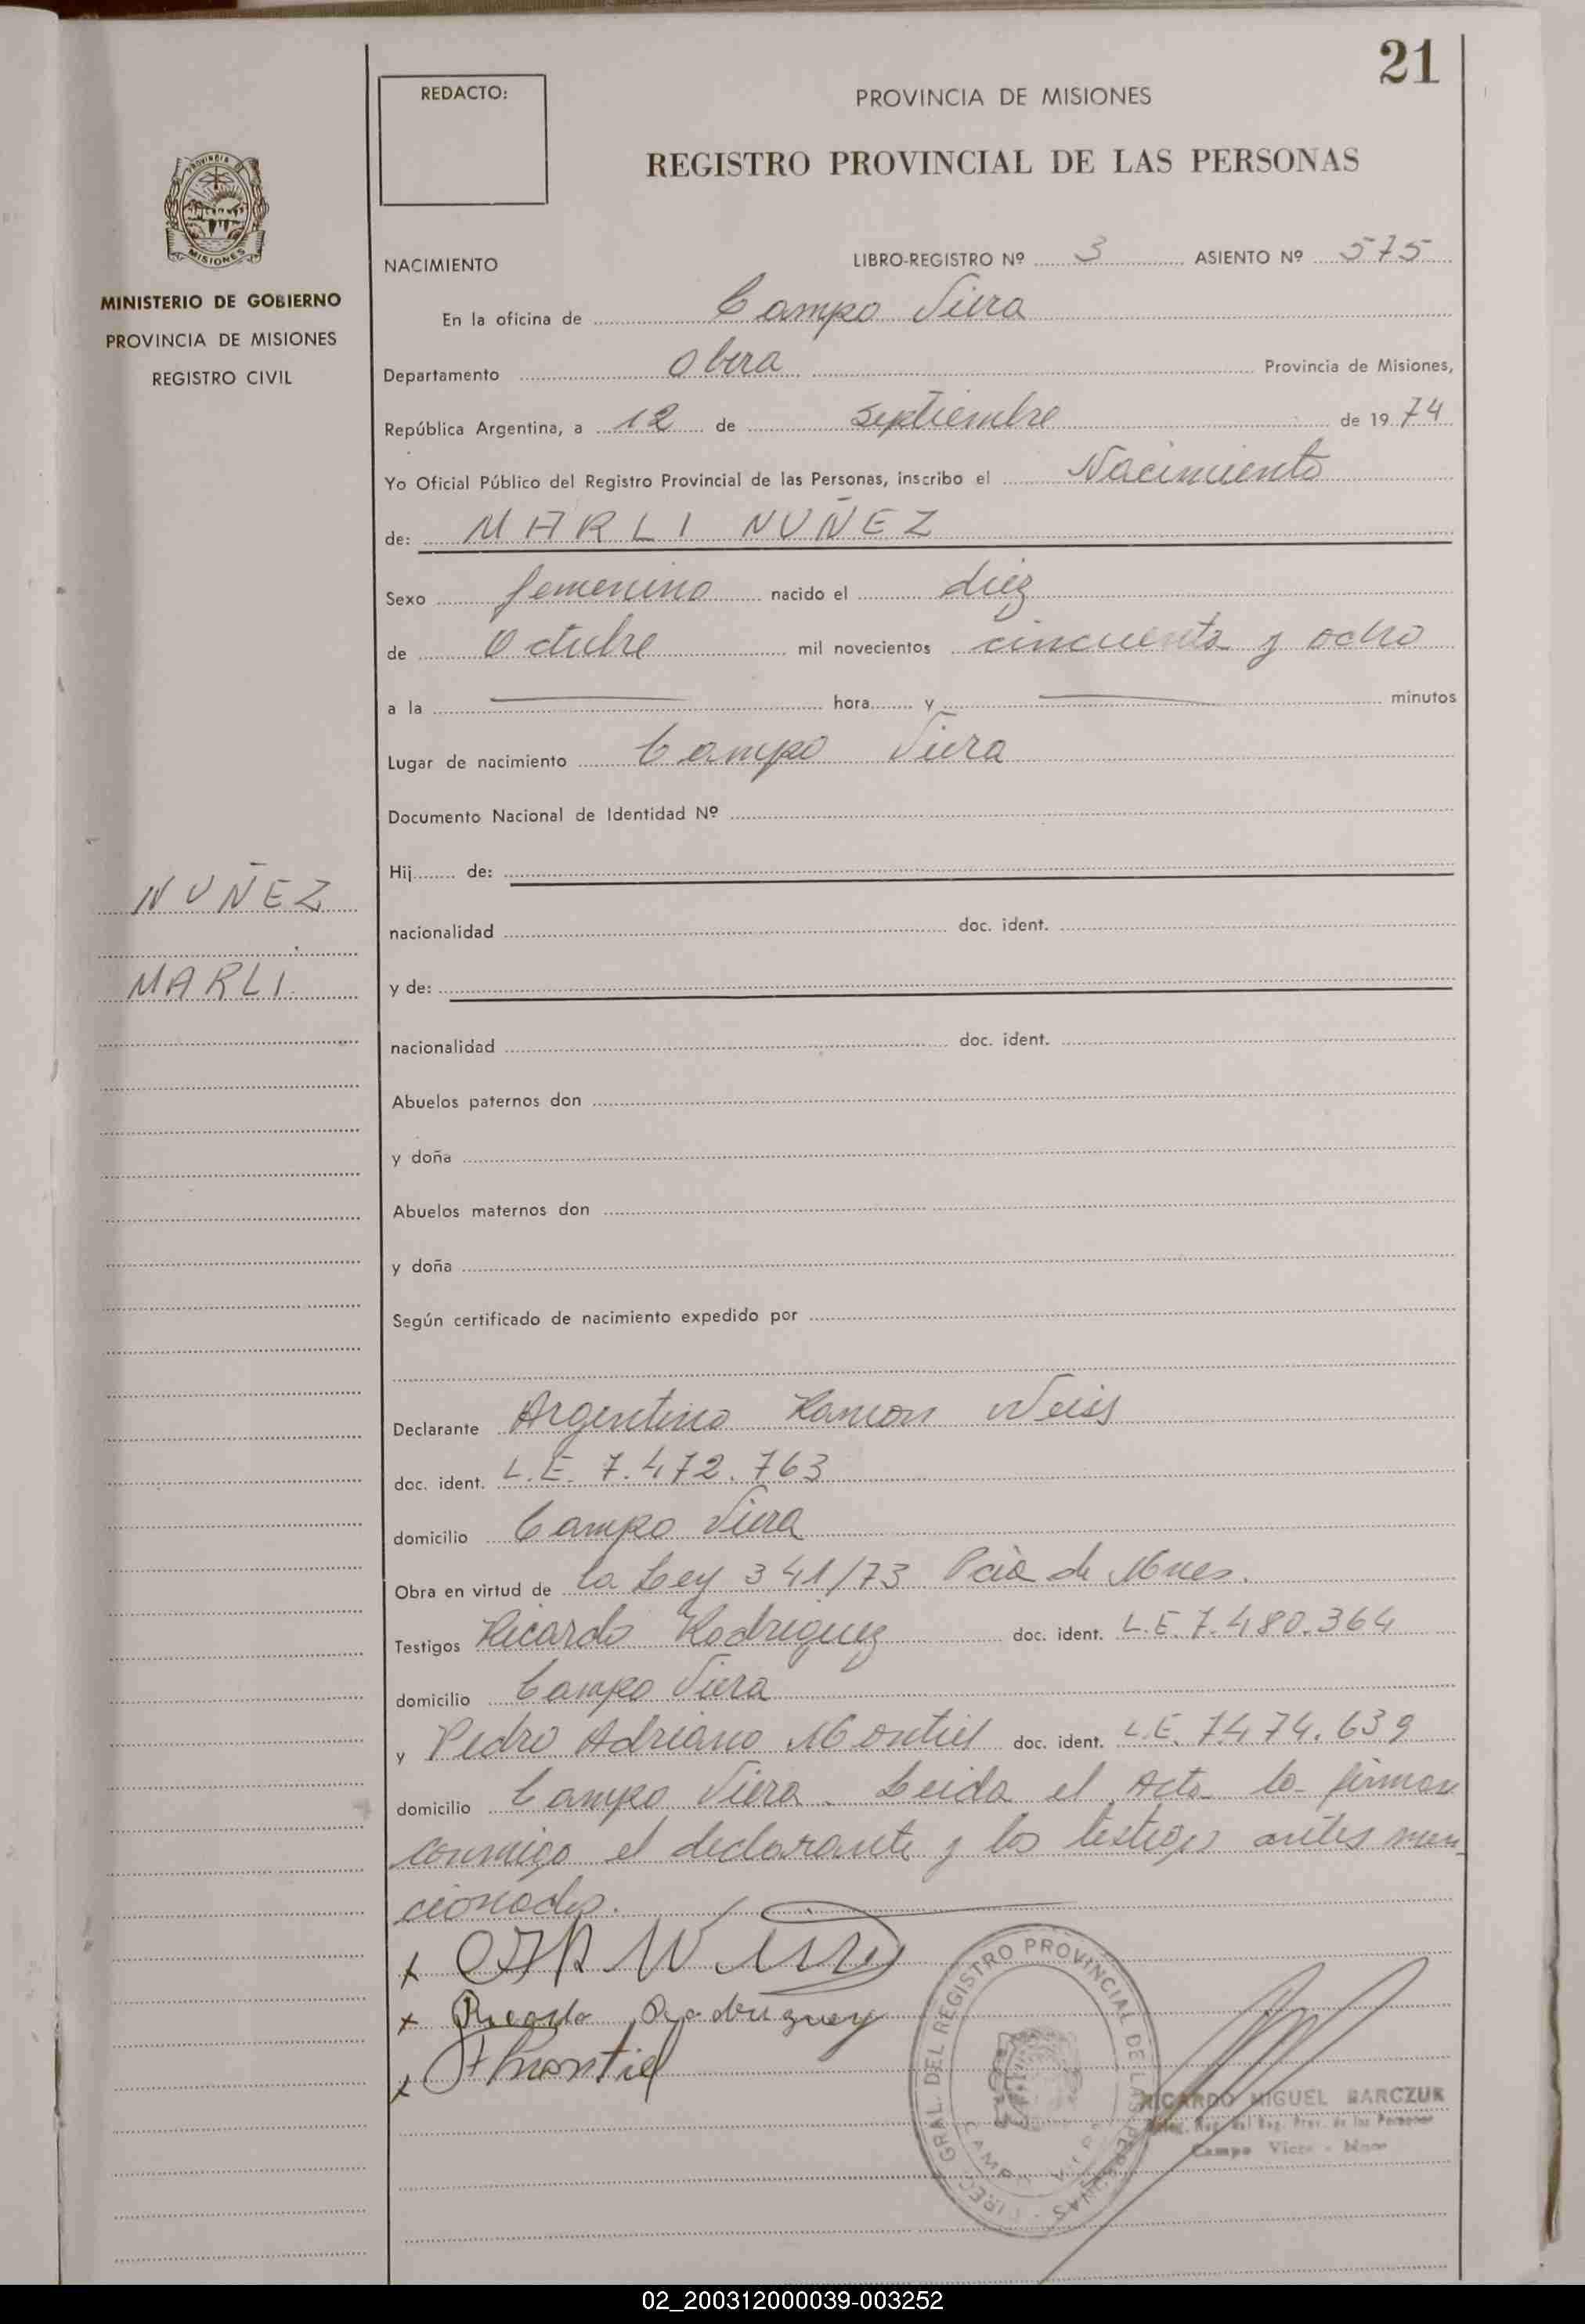 21
REDACTO:
PROVINCIA DE MISIONES
REGISTRO PROVINCIAL DE LAS PERSONAS
PROVINCIA DE
MISIONES
MINISTERIO DE GOBIERNO
PROVINCIA DE MISIONES
REGISTRO CIVIL
NUÑEZ
MARLI
NACIMIENTO LIBRO-REGISTRO Nº 3 ASIENTO Nº 575
En la oficina de Campo Viera
Departamento Obera Provincia de Misiones,
República Argentina, a 12 de septiembre de 1974
Yo Oficial Público del Registro Provincial de las Personas, inscribo el Nacimiento
de: MARLI NUÑEZ
Sexo femenino nacido el diez
de Octubre mil novecientos cincuenta y ocho
a la hora y minutos
Lugar de nacimiento Campo Viera
Documento Nacional de Identidad Nº
Hij de:
nacionalidad doc. ident.
y de:
nacionalidad doc. ident.
Abuelos paternos don
y doña
Abuelos maternos don
y doña
Según certificado de nacimiento expedido por
Declarante Argentino Ramon Weiss
doc. ident. L.E. 7.472.763
domicilio Campo Viera
Obra en virtud de la Ley 341/73 Pcia de Mnes.
Testigos Ricardo Rodriguez doc. ident. L.E. 7.480.364
domicilio Campo Viera
y Pedro Adriano Montiel doc. ident. L.E. 7474.639
domicilio Campo Viera. Leida el Acta la firman
conmigo el declarante y los testigos antes men
cionados.
x
x Ricardo Rodriguez
x Montiel
DIRECC. GRAL. DEL REGISTRO PROVINCIAL DE LAS PERSONAS
RICARDO MIGUEL BARCZUK
Reg. Prov. de las Personas
Campo Viera - Mnes
02_200312000039-003252